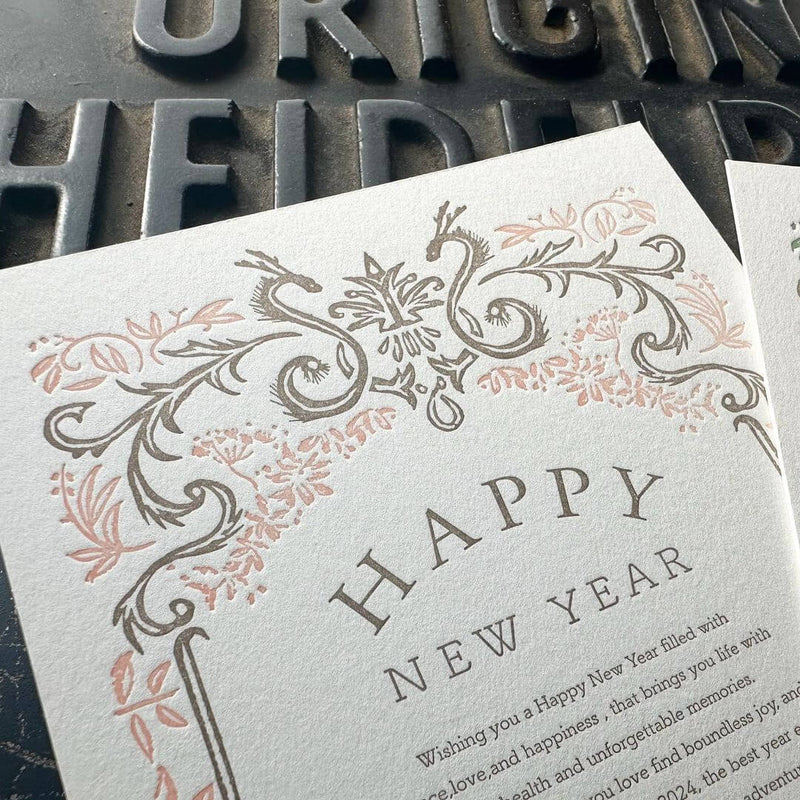 ORIGIN
HEIDELB
HAPPY
NEW YEAR
Wishing you a Happy New Year filled with
ce,love,and happiness , that brings you life with
health and unforgettable memories.
you love find boundless joy, and
2024, the best year e
adventur